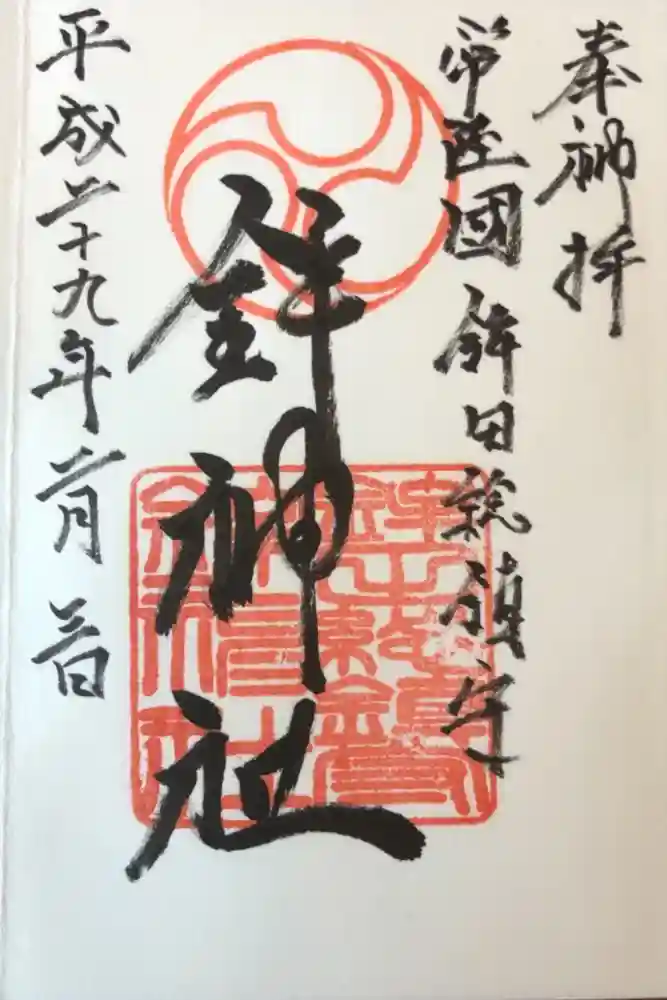 奉神拝
常陸國鉾田総鎮守
鉾神社
平成二十九年二月三日